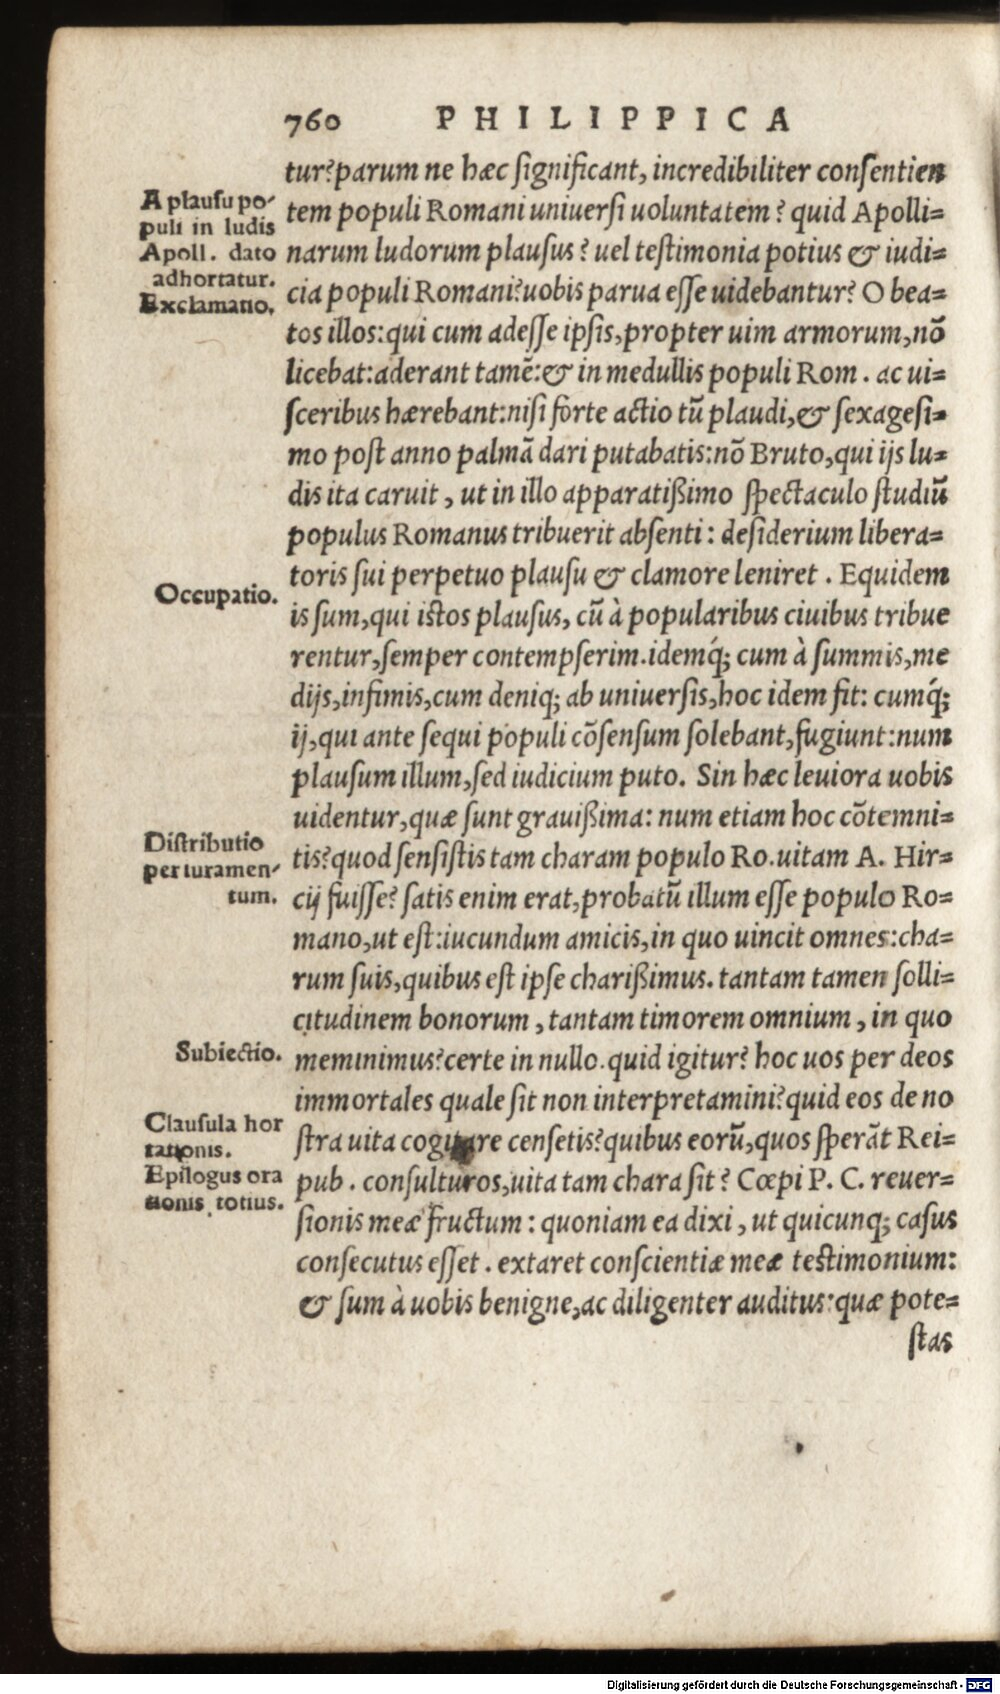 760 PHILIPPICA
tur?parum ne hæc significant, incredibiliter consentien
tem populi Romani uniuersi uoluntatem? quid Apolli=
narum ludorum plausus? uel testimonia potius & iudi=
cia populi Romani?uobis parua esse uidebantur? O bea=
tos illos:qui cum adesse ipsis,propter uim armorum,nõ
licebat:aderant tamẽ:& in medullis populi Rom. ac ui=
sceribus hærebant:nisi forte actio tũ plaudi,& sexagesi=
mo post anno palmã dari putabatis:nõ Bruto,qui ijs lu=
dis ita caruit, ut in illo apparatißimo spectaculo studiũ
populus Romanus tribuerit absenti: desiderium libera=
toris sui perpetuo plausu & clamore leniret. Equidem
is sum,qui istos plausus, cũ à popularibus ciuibus tribue
rentur,semper contempserim.idemq́; cum à summis,me
dijs,infimis,cum deniq; ab uniuersis,hoc idem fit: cumq́;
ij,qui ante sequi populi cõsensum solebant,fugiunt:num
plausum illum,sed iudicium puto. Sin hæc leuiora uobis
uidentur,quæ sunt grauißima: num etiam hoc cõtemni=
tis?quod sensistis tam charam populo Ro.uitam A. Hir=
cij fuisse? satis enim erat,probatũ illum esse populo Ro=
mano,ut est:iucundum amicis,in quo uincit omnes:cha=
rum suis,quibus est ipse charißimus. tantam tamen solli=
citudinem bonorum, tantam timorem omnium, in quo
meminimus?certe in nullo.quid igitur? hoc uos per deos
immortales quale sit non interpretamini?quid eos de no
stra uita cogitare censetis?quibus eorũ,quos sperãt Rei=
pub. consulturos,uita tam chara sit? Cœpi P. C. reuer=
sionis meæ fructum: quoniam ea dixi, ut quicunq; casus
consecutus esset. extaret conscientiæ meæ testimonium:
& sum à uobis benigne,ac diligenter auditus:quæ pote=
stas
A plausu po-
puli in ludis
Apoll. dato
adhortatur.
Exclamatio.
Occupatio.
Distributio
per iuramen-
tum.
Subiectio.
Clausula hor
tationis.
Epilogus ora
tionis totius.
Digitalisierung gefördert durch die Deutsche Forschungsgemeinschaft - DFG